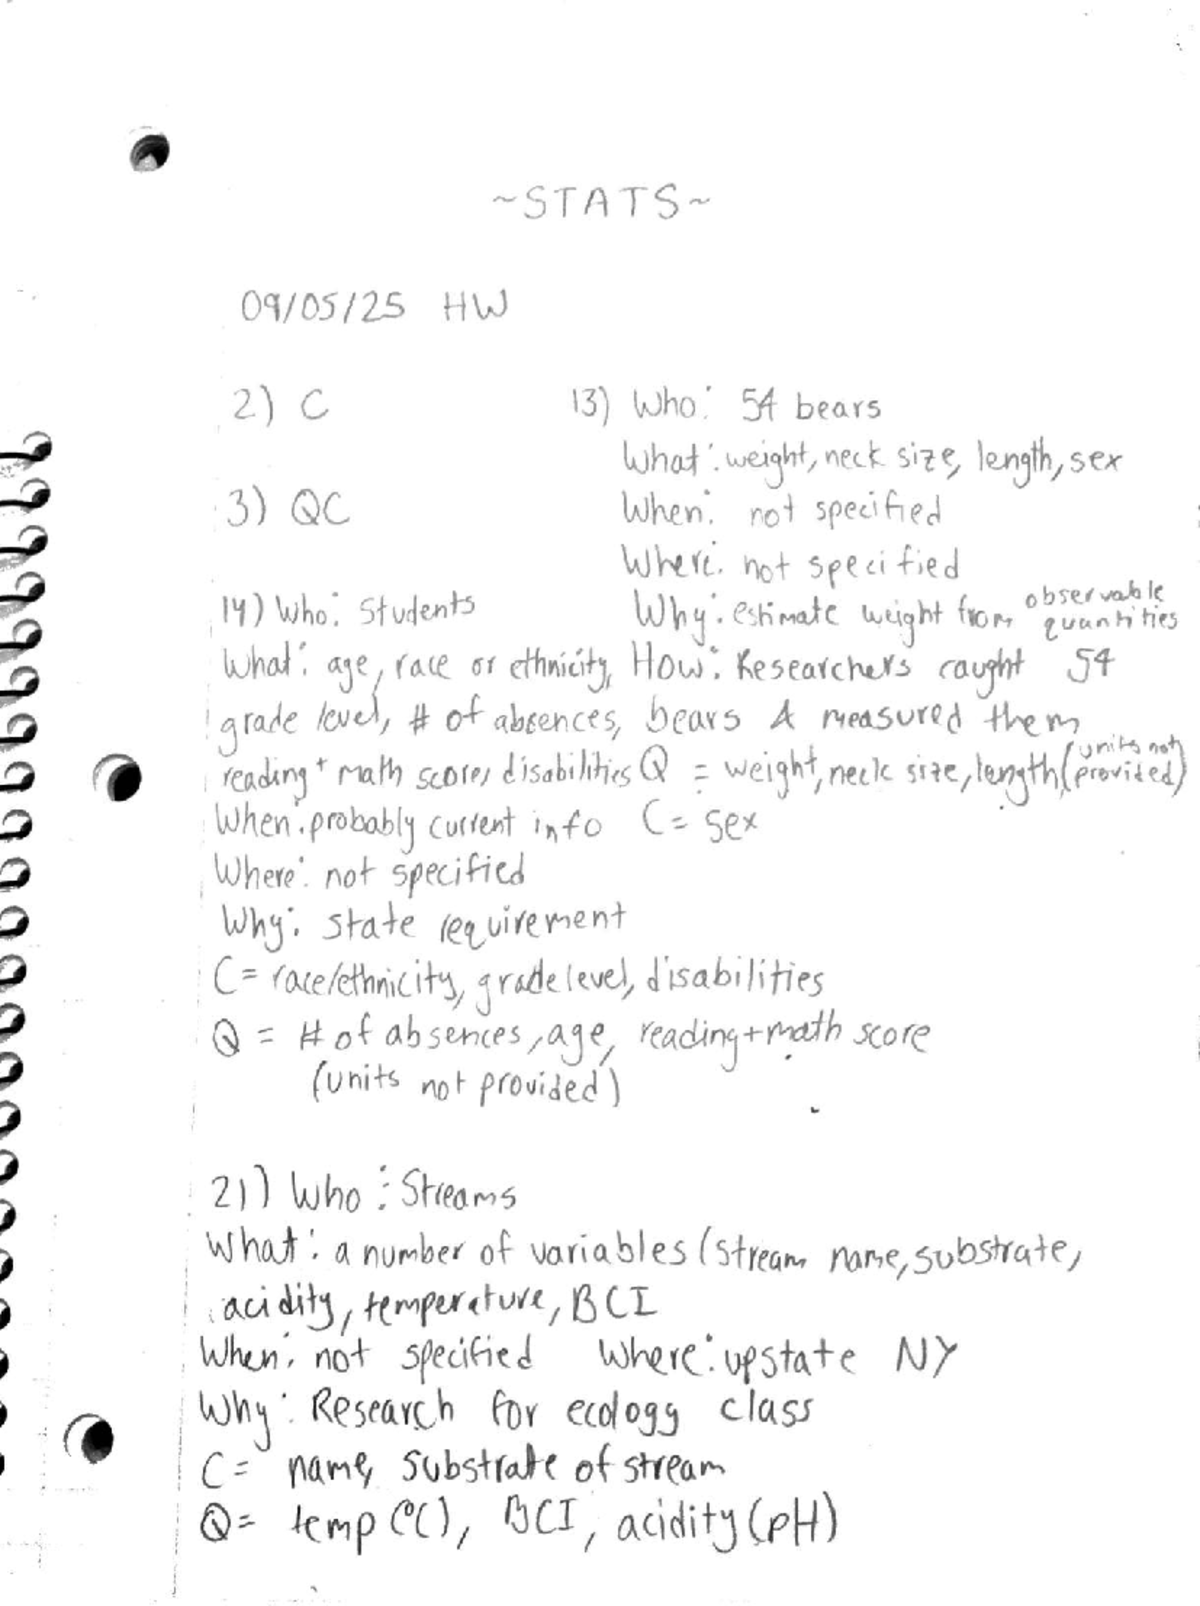 ~STATS~
09/05/25 HW
2) C
3) QC
13) Who: 54 bears
What: weight, neck size, length, sex
When: not specified
Where: not specified
Why: estimate weight from observable quantities
How: Researchers caught 54
bears & measured them
Q = weight, neck size, length (units not provided)
C = sex
14) Who: Students
What: age, race or ethnicity,
grade level, # of absences,
reading + math scores, disabilities
When: probably current info
Where: not specified
Why: state requirement
C = race/ethnicity, grade level, disabilities
Q = # of absences, age, reading + math score
(units not provided)
21) Who: Streams
What: a number of variables (stream name, substrate,
acidity, temperature, BCI
When: not specified Where: upstate NY
Why: Research for ecology class
C = name, substrate of stream
Q = temp (°C), BCI, acidity (pH)